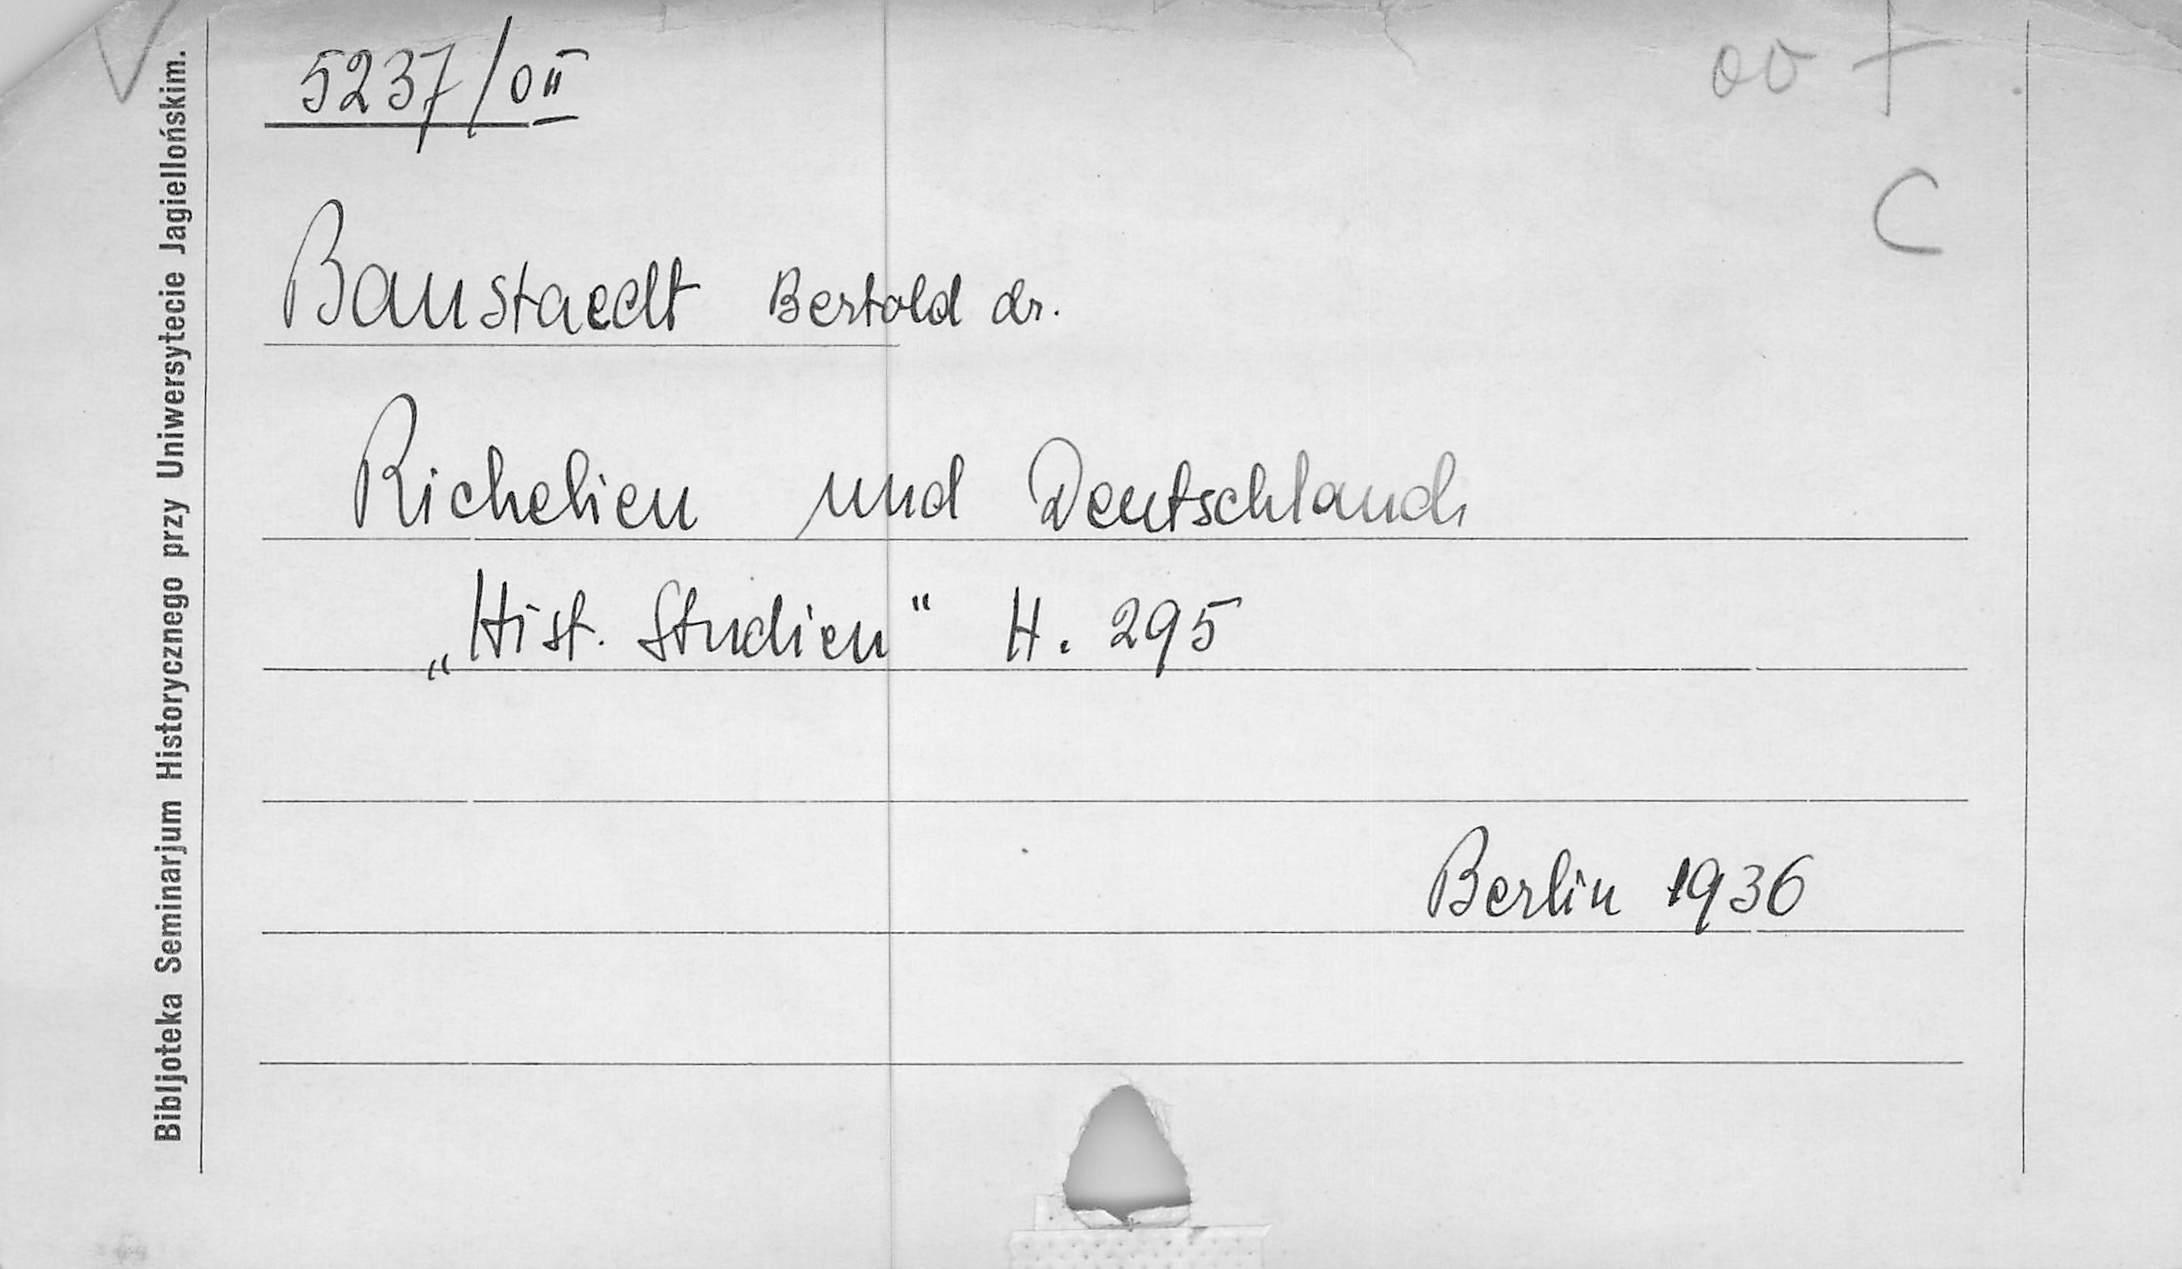 5237/0II
oo +
C
Baustaedt Bertold dr.
Richelieu und Deutschland
„Hist. Studien“ H. 295
Berlin 1936
Bibljoteka Seminarjum Historycznego przy Uniwersytecie Jagiellońskim.